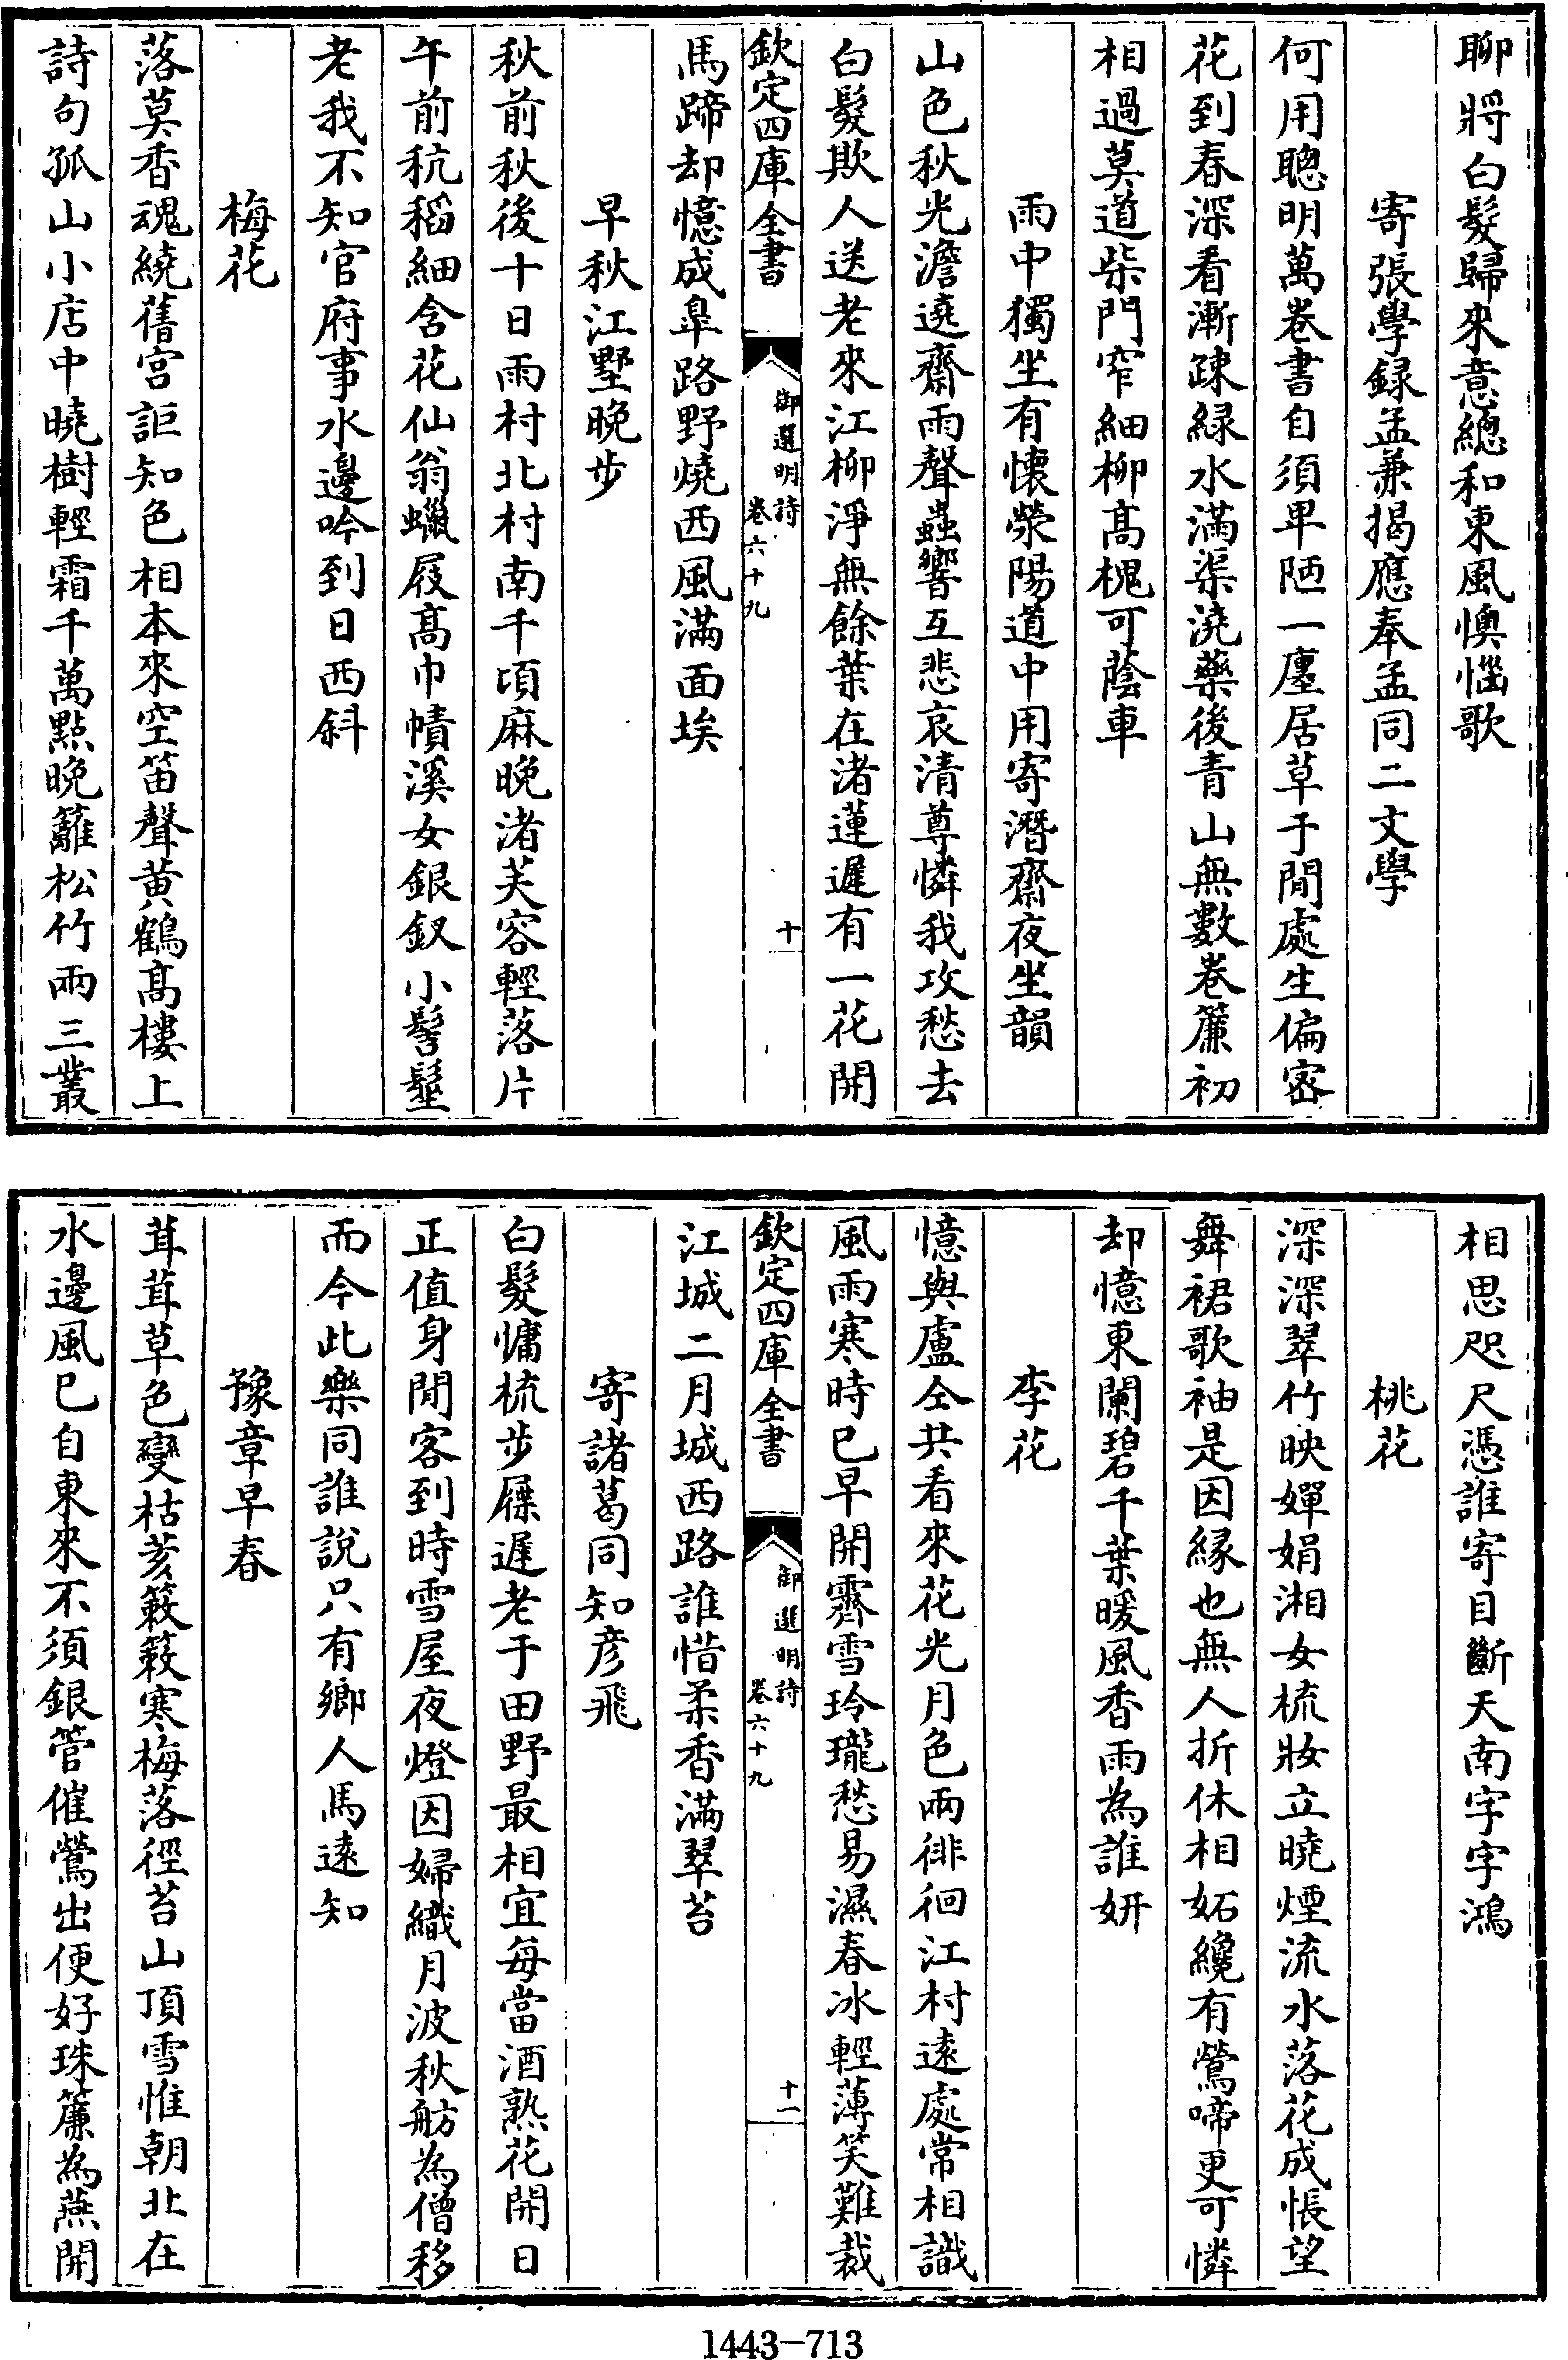 聊將白髮歸來意總和東風懊惱歌
寄張學録孟兼揭應奉孟同二文學
何用聰明萬卷書自須卑陋一廛居草于閒處生偏密
花到春深看漸疎緑水滿渠澆藥後青山無數卷簾初
相過莫道柴門窄細柳髙槐可蔭車
雨中獨坐有懐滎陽道中用寄潛齋夜坐韻
山色秋光澹遶齋雨聲蟲響互悲哀清尊憐我攻愁去
白髮欺人送老來江柳淨無餘葉在渚蓮遲有一花開
欽定四庫全書
御選明詩
卷六十九
十
馬蹄却憶成臯路野燒西風滿面埃
早秋江墅晚步
秋前秋後十日雨村北村南千頃麻晚渚芙容輕落片
午前秔稻細含花仙翁蠟屐髙巾幘溪女銀釵小髻髽
老我不知官府事水邊吟到日西斜
梅花
落莫香魂繞舊宫詎知色相本來空笛聲黄鶴髙樓上
詩句孤山小店中曉樹輕霜千萬點晚籬松竹兩三叢
相思咫尺憑誰寄目斷天南字字鴻
桃花
深深翠竹映嬋娟湘女梳妝立曉煙流水落花成悵望
舞裙歌袖是因縁也無人折休相妬纔有鶯啼更可憐
却憶東闌碧千葉暖風香雨為誰妍
李花
憶與盧仝共看來花光月色兩徘徊江村逺處常相識
風雨寒時已早開霽雪玲瓏愁易濕春冰輕薄笑難裁
欽定四庫全書
御選明詩
卷六十九
十一
江城二月城西路誰惜柔香滿翠苔
寄諸葛同知彦飛
白髮慵梳步屧遲老于田野最相宜每當酒熟花開日
正值身閒客到時雪屋夜燈因婦織月波秋舫為僧移
而今此樂同誰說只有鄉人馬逺知
豫章早春
茸茸草色變枯荄簌簌寒梅落徑苔山頂雪惟朝北在
水邊風已自東來不須銀管催鶯出便好珠簾為燕開
1443-713